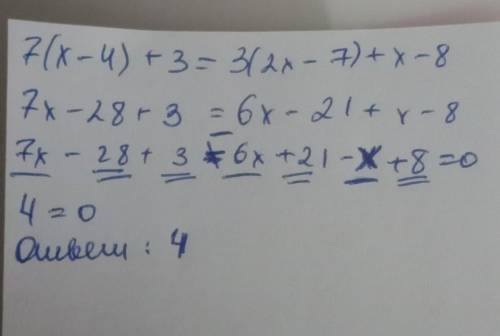 7(x-4)+3=3(2x-7)+x-8
7x-28+3=6x-21+x-8
7x-28+3-6x+21-x+8=0
4=0
Ответ: 4